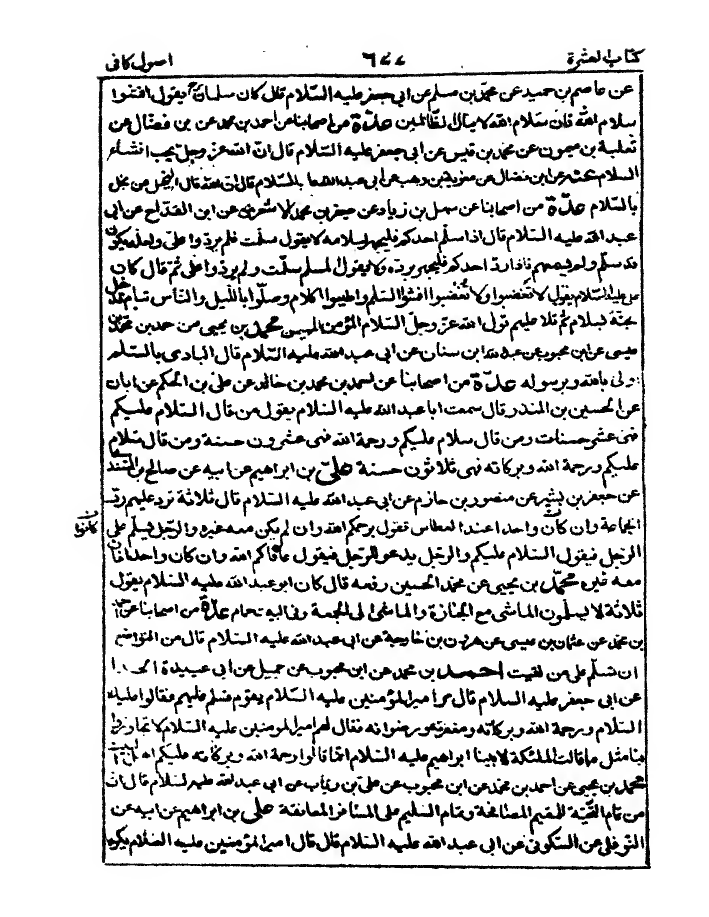 كتاب العشرة ٦٧٧ اصول كافى
عن عاصم بن حميد عن محمد بن مسلم عن ابى جعفر عليه السّلام قال كان سلمان يقول افشوا
سلام الله فان سلام الله لا ينال الظالمين عدّة من اصحابنا عن احمد بن محمد عن بن فضال عن
ثعلبة بن ميمون عن محمد بن قيس عن ابى جعفر عليه السّلام قال انّ الله عزّ وجل يحب افشاء
السلام عنه عن ابن فضال عن معوية بن وهب عن ابى عبد الله قال البخيل من بخل
بالسّلام عدّة من اصحابنا عن سهل بن زياد عن جعفر بن محمد الاشعرى عن ابن القداح عن ابى
عبد الله عليه السّلام قال اذا سلم احدكم فليجهر بسلامه لا يقول سلّمت فلم يردّوا علىّ ولعله يكون
قد سلّم ولم يسمعهم فاذا ردّ احدكم فليجهر بردّه ولا يقول المسلم سلّمت ولم يردّوا علىّ ثمّ قال كان
على عليه السّلام يقول لا تغضبوا ولا تُغضبوا افشوا السّلم واطيبوا الكلام وصلّوا بالليل والنّاس نيام تدخلوا
جنّة بسلام ثم تلا عليهم قول الله عزّ وجلّ السّلام المؤمن المهيمن محمد بن يحيى عن احمد بن محمد بن
عيسى عن ابن محبوب عن عبد الله بن سنان عن ابى عبد الله عليه السّلام قال البادى بالسّلم
اولى بالله وبرسوله عدّة من اصحابنا عن احمد بن محمد بن خالد عن علىّ بن الحكم عن ابان
عن الحسين بن المنذر قال سمعت ابا عبد الله عليه السلام يقول من قال السّلام عليكم
فهى عشر حسنات ومن قال سلام عليكم ورحمة الله فهى عشرون حسنة ومن قال سلام
عليكم ورحمة الله وبركاته فهى ثلاثون حسنة علىّ بن ابراهيم عن ابيه عن صالح بن السّندى
عن جعفر بن بشير عن منصور بن حازم عن ابى عبد الله عليه السّلام قال ثلاثة تردّ عليهم ردّ
الجماعة وان كان واحدا عند العطاس تقول يرحمكم الله وان لم يكن معه غيره والرّجل يسلّم على
الرجل فيقول السّلام عليكم والرّجل يدعو للرّجل فيقول عافاكم الله وان كان واحدا فان
معه غيره محمّد بن يحيى عن محمد بن الحسين رفعه قال كان ابو عبد الله عليه السّلام يقول
ثلاثة لا يسلّمون الماشى مع الجنازة والماشى الى الجمعة وفى بيت حمام عدّة من اصحابنا عن احمد
بن محمد عن عثمان بن عيسى عن هرون بن خارجة عن ابى عبد الله عليه السّلام قال من التواضع
ان تسلّم على من لقيت احمد بن محمد عن ابن محبوب عن جميل عن ابى عبيدة الحذّا
عن ابى جعفر عليه السلام قال مرّ امير المؤمنين عليه السّلام بقوم فسلّم عليهم فقالوا عليك
السّلام ورحمة الله وبركاته ومغفرته ورضوانه فقال لهم امير المؤمنين عليه السّلام لا تجاوزوا
بنا مثل ما قالت الملئكة لابينا ابراهيم عليه السّلام انّما قالوا رحمة الله وبركاته عليكم اهل البيت
محمد بن يحيى عن احمد بن محمد عن ابن محبوب عن علىّ بن رئاب عن ابى عبد الله عليه السّلام قال انّ
من تمام التّحيّة للمقيم المصافحة وتمام التّسليم على المسافر المعانقة علىّ بن ابراهيم عن ابيه عن
النّوفلى عن السّكونى عن ابى عبد الله عليه السّلام قال قال امير المؤمنين عليه السلام يكره